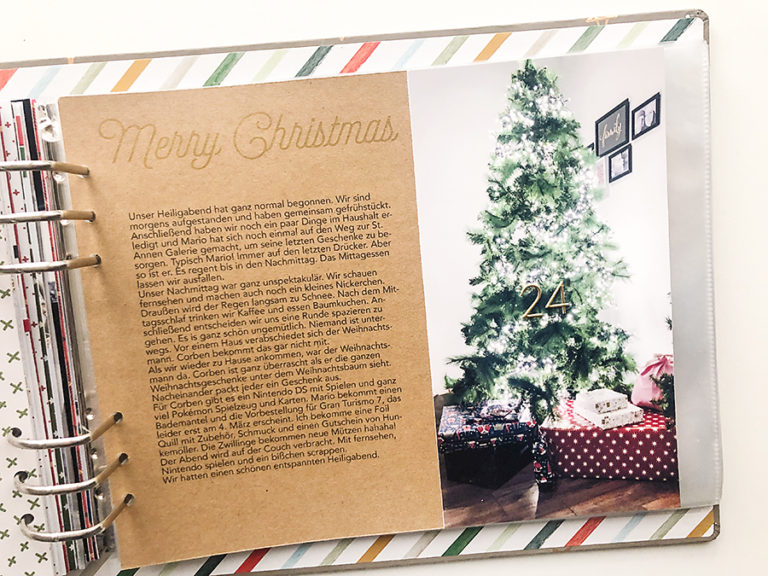 Merry Christmas
Unser Heiligabend hat ganz normal begonnen. Wir sind
morgens aufgestanden und haben gemeinsam gefrühstückt.
Anschließend haben wir noch ein paar Dinge im Haushalt er-
ledigt und Mario hat sich noch einmal auf den Weg zur St.
Annen Galerie gemacht, um seine letzten Geschenke zu be-
sorgen. Typisch Mario! Immer auf den letzten Drücker. Aber
so ist er. Es regent bis in den Nachmittag. Das Mittagessen
lassen wir ausfallen.
Unser Nachmittag war ganz unspektakulär. Wir schauen
fernsehen und machen auch noch ein kleines Nickerchen.
Draußen wird der Regen langsam zu Schnee. Nach dem Mit-
tagsschlaf trinken wir Kaffee und essen Baumkuchen. An-
schließend entscheiden wir uns eine Runde spazieren zu
gehen. Es is ganz schön ungemütlich. Niemand ist unter-
wegs. Vor einem Haus verabschiedet sich der Weihnachts-
mann. Corben bekommt das gar nicht mit.
Als wir wieder zu Hause ankommen, war der Weihnachts-
mann da. Corben ist ganz überrascht als er die ganzen
Weihnachtsgeschenke unter dem Weihnachtsbaum sieht.
Nacheinander packt jeder ein Geschenk aus.
Für Corben gibt es ein Nintendo DS mit Spielen und ganz
viel Pokémon Spielzeug und Karten. Mario bekommt einen
Bademantel und die Vorbestellung für Gran Turismo 7, das
leider erst am 4. März erscheint. Ich bekomme eine Foil
Quill mit Zubehör, Schmuck und einen Gutschein von Hun-
kemöller. Die Zwillinge bekommen neue Mützen hahaha!
Der Abend wird auf der Couch verbracht. Mit fernsehen,
Nintendo spielen und ein bißchen scrappen.
Wir hatten einen schönen entspannten Heiligabend.
family
24